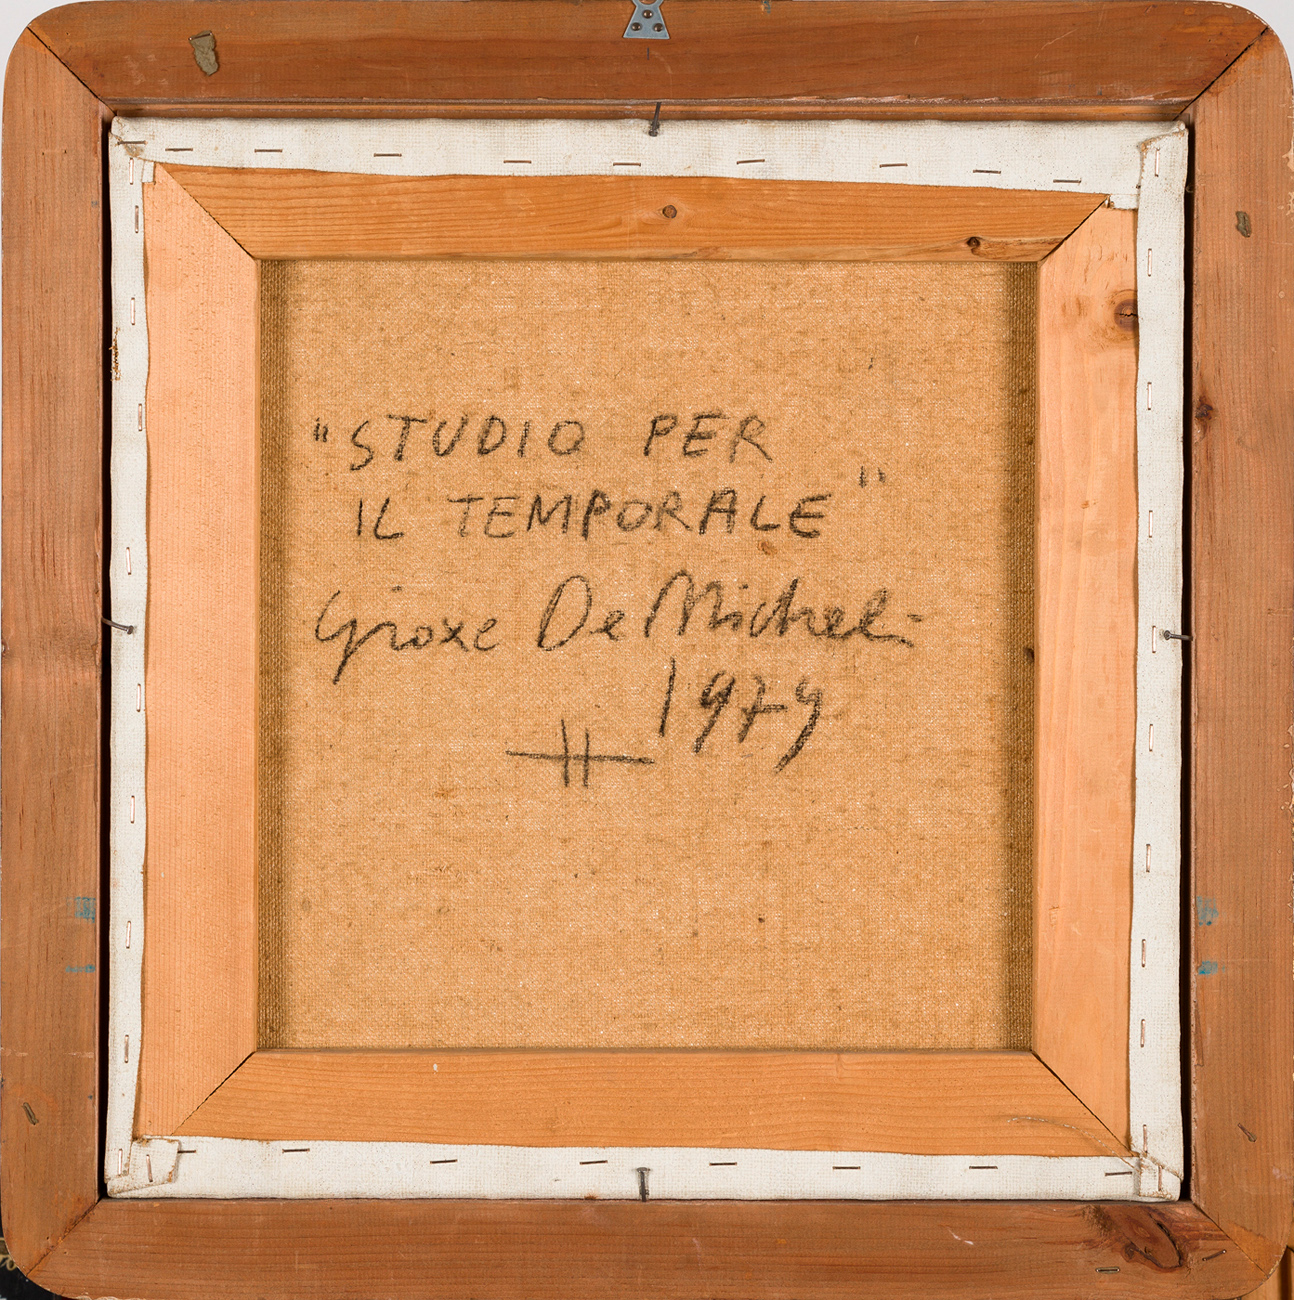 "STUDIO PER
IL TEMPORALE"
Gioxe De Micheli
1979